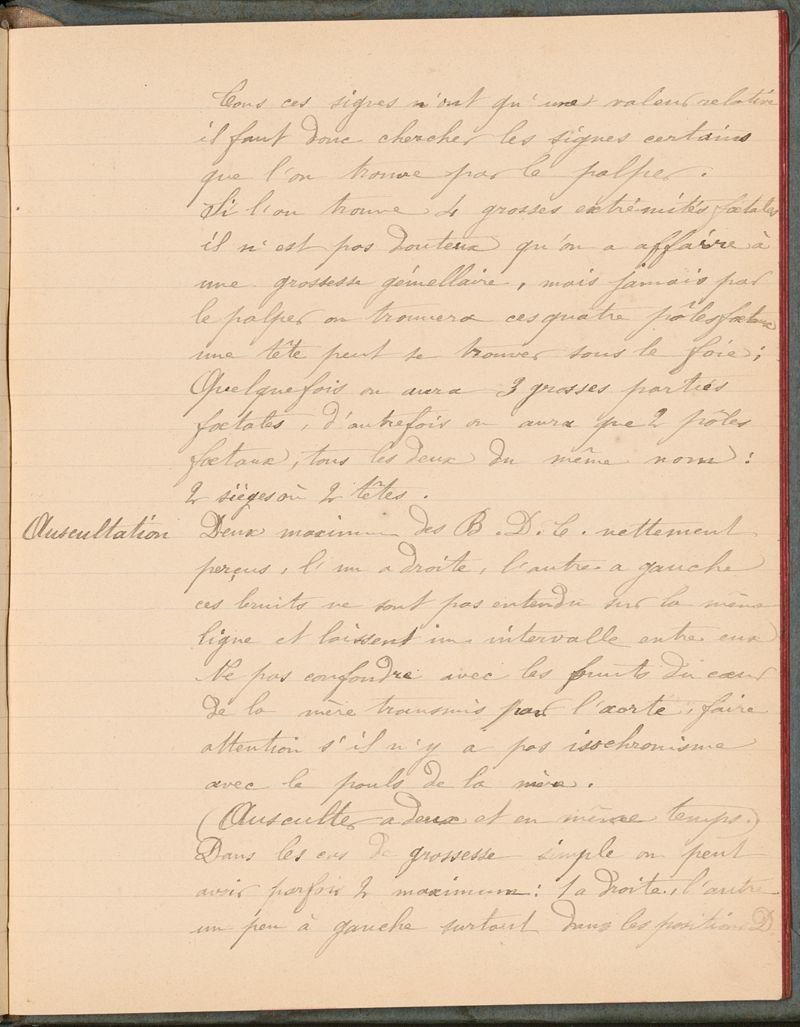 Tous ces signes n'ont qu'une valeur relative
il faut donc chercher les signes certains
que l'on trouve par le palper.
Si l'on trouve 4 grosses extrémités fœtales
il n'est pas douteux qu'on a affaire à
une grossesse gémellaire, mais jamais par
le palper on trouvera ces quatre pôles fœtaux
une tête peut se trouver sous le foie;
Quelquefois on aura 3 grosses parties
fœtales, d'autrefois on aura que 2 pôles
fœtaux, tous les deux du même nom:
2 sièges où 2 têtes.
Auscultation Deux maximum des B.D.C. nettement
perçus, l'un a droite, l'autre a gauche
ces bruits ne sont pas entendu sur la même
ligne et laissent un intervalle entre eux
Ne pas confondre avec les bruits du cœur
de la mère transmis par l'aorte, faire
attention s'il n'y a pas isochronisme
avec le pouls de la mère.
(Ausculter a deux et en même temps.)
Dans les cas de grossesse simple on peut
avoir parfois 2 maximum: 1 a droite, l'autre
un peu à gauche surtout dans les positions D